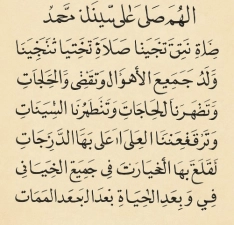 الهم صلى على سيندنا محمد
صلاة نبتق تجينا صلاة تختيا تنجينا
ولد جميع الأهوال وتقضى والحاجات
وتضهرنا الحاجات وتنطهرنا السينات
وترقفعننا العلى اعلى بها الدرجات
لقلغ بها الخيارت فى جميع الخيانى
فى وبعد الحياة بعد البعد الممات